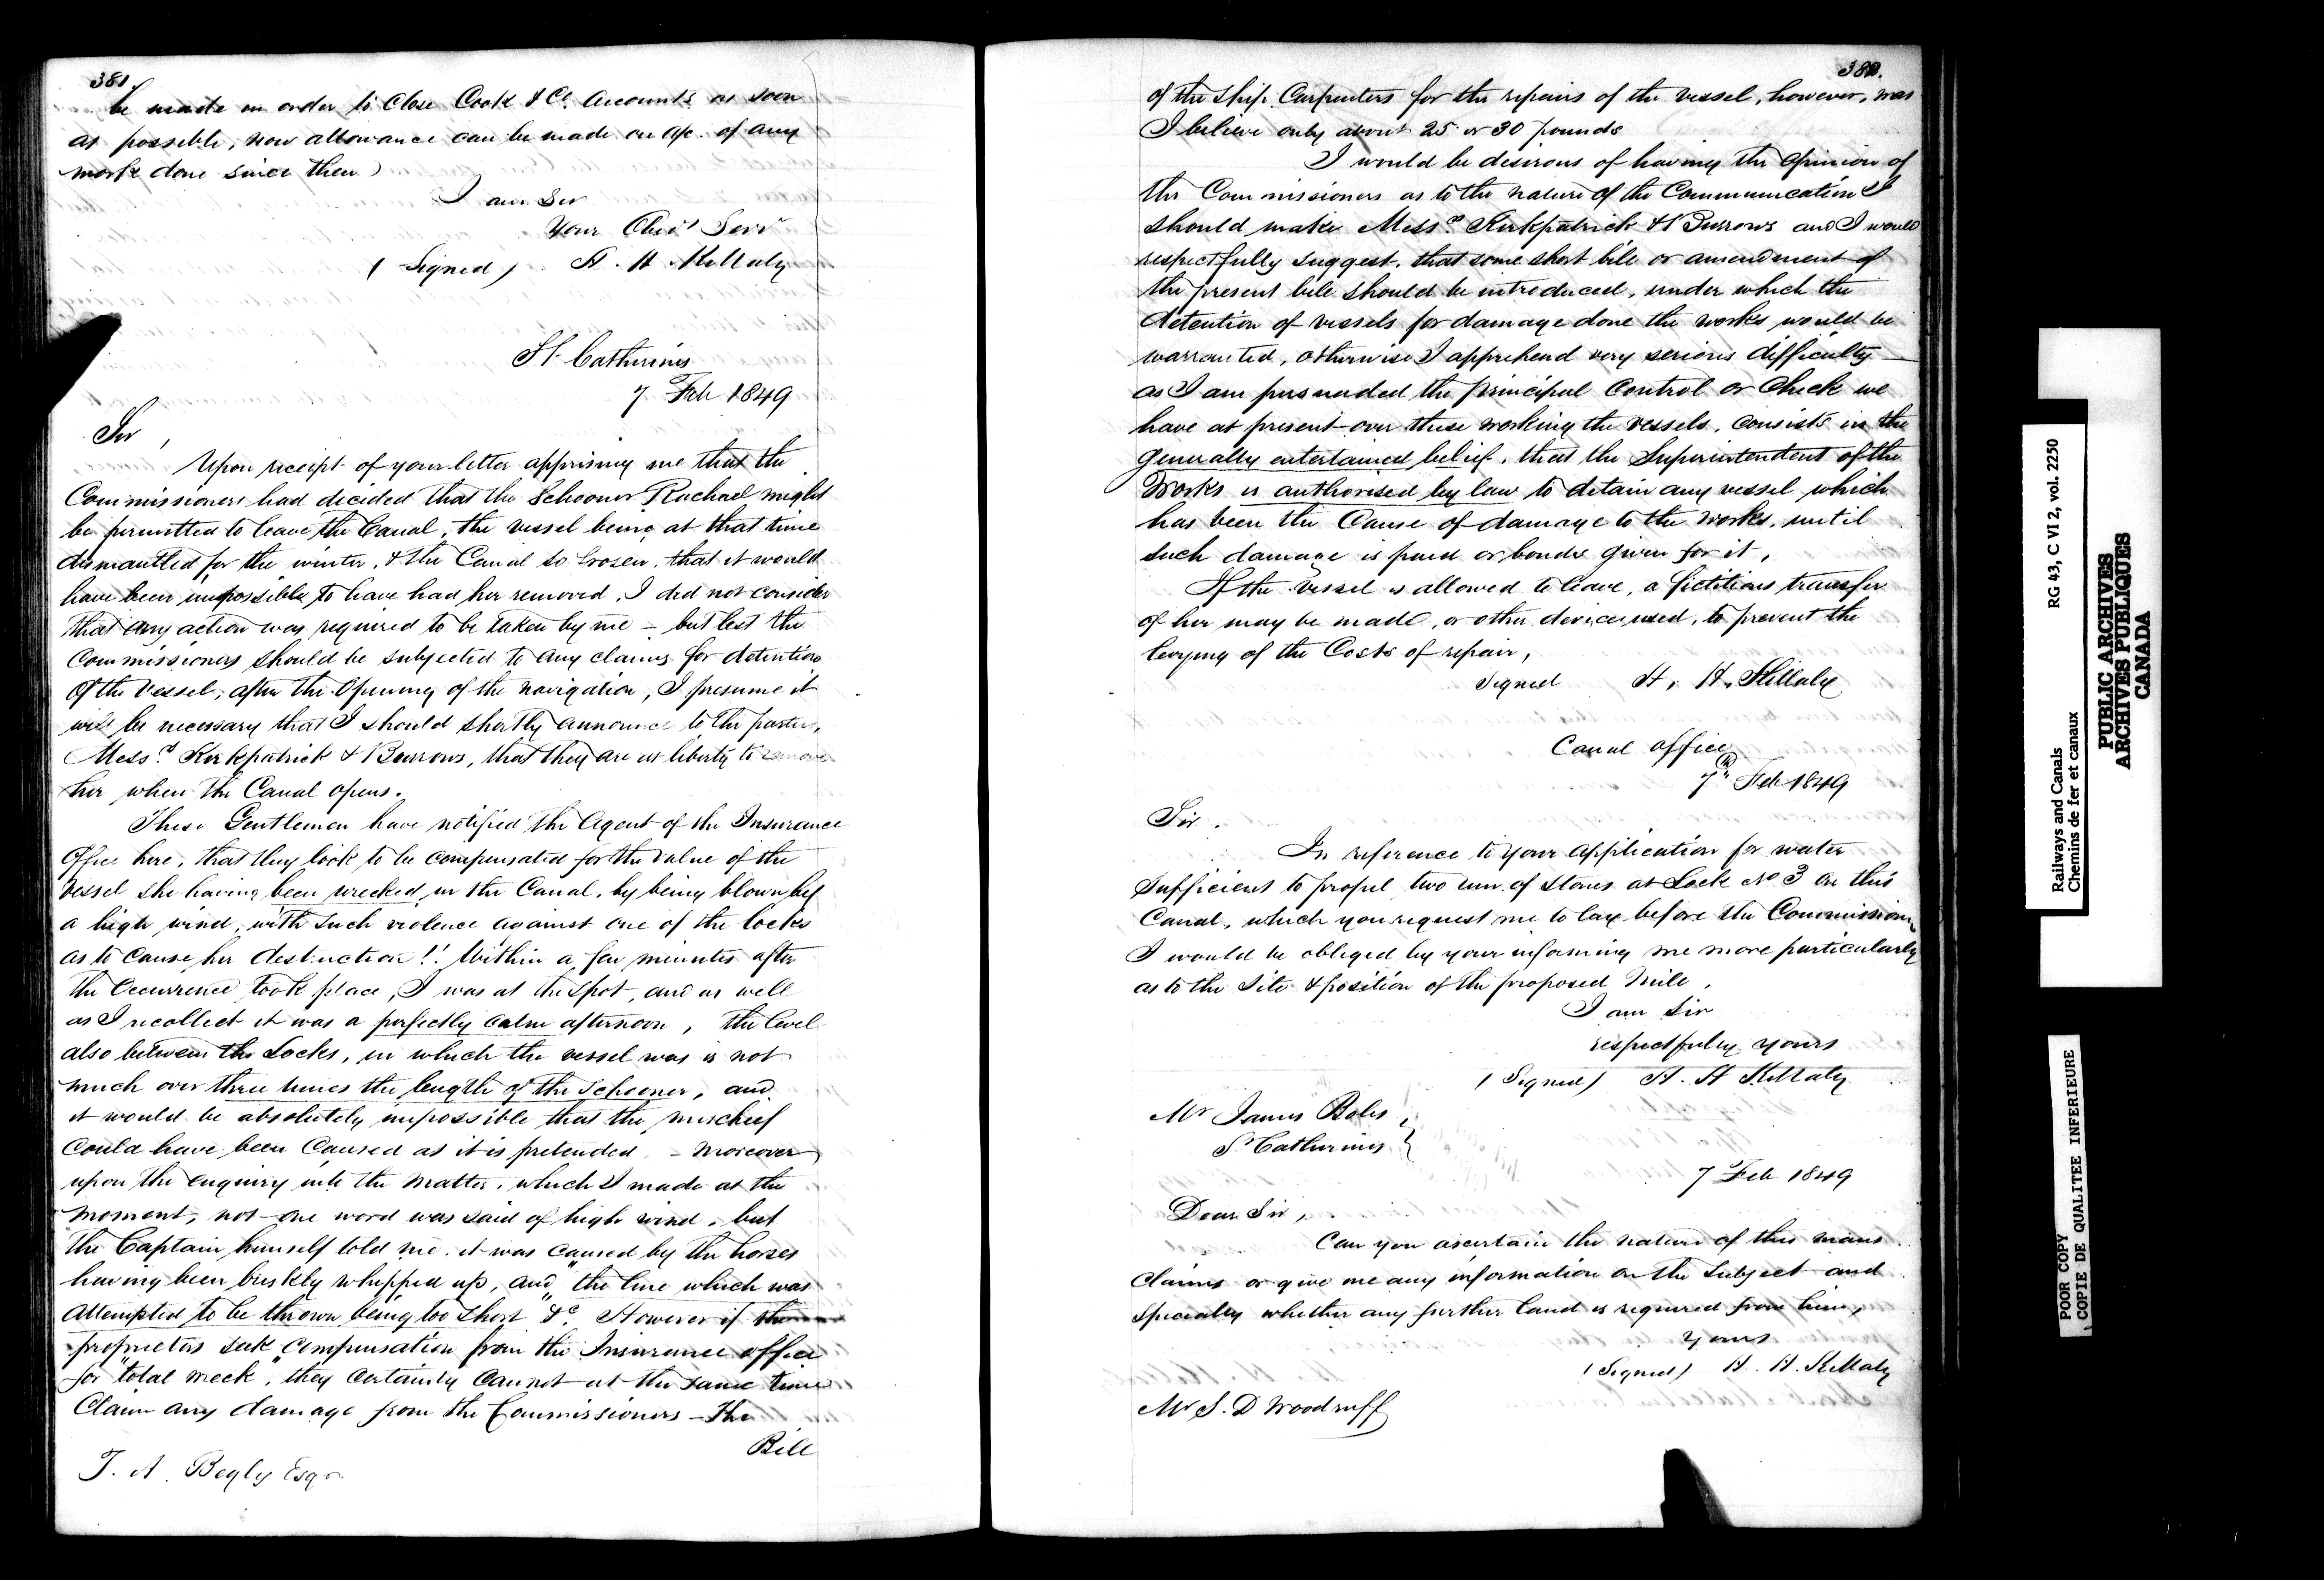 381
be made in order to Close Cook & Co. Accounts as soon
as possible, now allowance can be made on a/c. of any
work done since then
I am Sir
Your Obedt Servt
(Signed) H. H. Killaly
St. Catharines
7 Feb 1849
Sir,
Upon receipt of your letter apprising me that the
Commissioners had decided that the Schooner Rachael might
be permitted to leave the Canal, the vessel being at that time
dismantled for the winter, & the Canal so frozen, that it would
have been impossible to have had her removed, I did not consider
that any action was required to be taken by me – but lest the
Commissioners should be subjected to any claims for detention
of the Vessel, after the Opening of the navigation, I presume it
will be necessary that I should shortly announce to the parties,
Messrs Kirkpatrick & Burrows, that they are at liberty to remove
her when the Canal opens.
These Gentlemen have notified the Agent of the Insurance
Office here, that they look to be compensated for the value of the
vessel she having been wrecked in the Canal, by being blown by
a high wind, with such violence against one of the locks
as to cause her destruction!! Within a few minutes after
the Occurrence took place, I was at the spot, and as well
as I recollect it was a perfectly calm afternoon, the level
also between the Locks, in which the vessel was is not
much over three times the length of the Schooner, and
it would be absolutely impossible that the mischief
could have been Caused as it is pretended – moreover
upon the enquiry into the matter, which I made at the
moment, not one word was said of high wind, but
the Captain himself told me it was "caused by the horses
having been briskly whipped up, and "the line which was
attempted to be thrown being too short &c. However if the
proprietors seek compensation from the Insurance office
for "total wreck", they certainly cannot at the same time
Claim any damage from the Commissioners – The
Bill
T. A. Begly Esqr
382.
of the Ship Carpenters for the repairs of the vessel, however, was
I believe only about 25 or 30 pounds
I would be desirous of having the Opinion of
the Commissioners as to the nature of the Communication I
should make Messrs Kirkpatrick & Burrows and I would
respectfully suggest, that some short bill or amendment of
the present bill should be introduced, under which the
detention of vessels for damage done the works would be
warranted, otherwise I apprehend very serious difficulty
as I am persuaded the principal Control or Check we
have at present over those working the vessels, consists in the
generally entertained belief, that the Superintendent of the
Works is authorised by law to detain any vessel which
has been the Cause of damage to the works, until
such damage is paid or bonds given for it,
If the vessel is allowed to leave, a fictitious transfer
of her may be made, or other devices used, to prevent the
levying of the Costs of repair,
Signed H. H. Killaly
Canal Office
7th Feb 1849
Sir.
In reference to your application for water
Sufficient to propel two run of stones at Lock No 3 on this
Canal, which you request me to lay before the Commissioners
I would be obliged by your informing me more particularly
as to the Site & position of the proposed Mill,
I am Sir
respectfully yours
(Signed) H. H. Killaly
Mr James Boles
St Catharines
7 Feb 1849
Dear Sir,
Can you ascertain the nature of this mans
Claims or give me any information on the subject and
specially whether any further land is required from him,
Yours
(Signed) H. H. Killaly
Mr S. D Woodruff
RG 43, C VI 2, vol. 2250
Railways and Canals
Chemins de fer et canaux
PUBLIC ARCHIVES
ARCHIVES PUBLIQUES
CANADA
POOR COPY
COPIE DE QUALITEE INFERIEURE